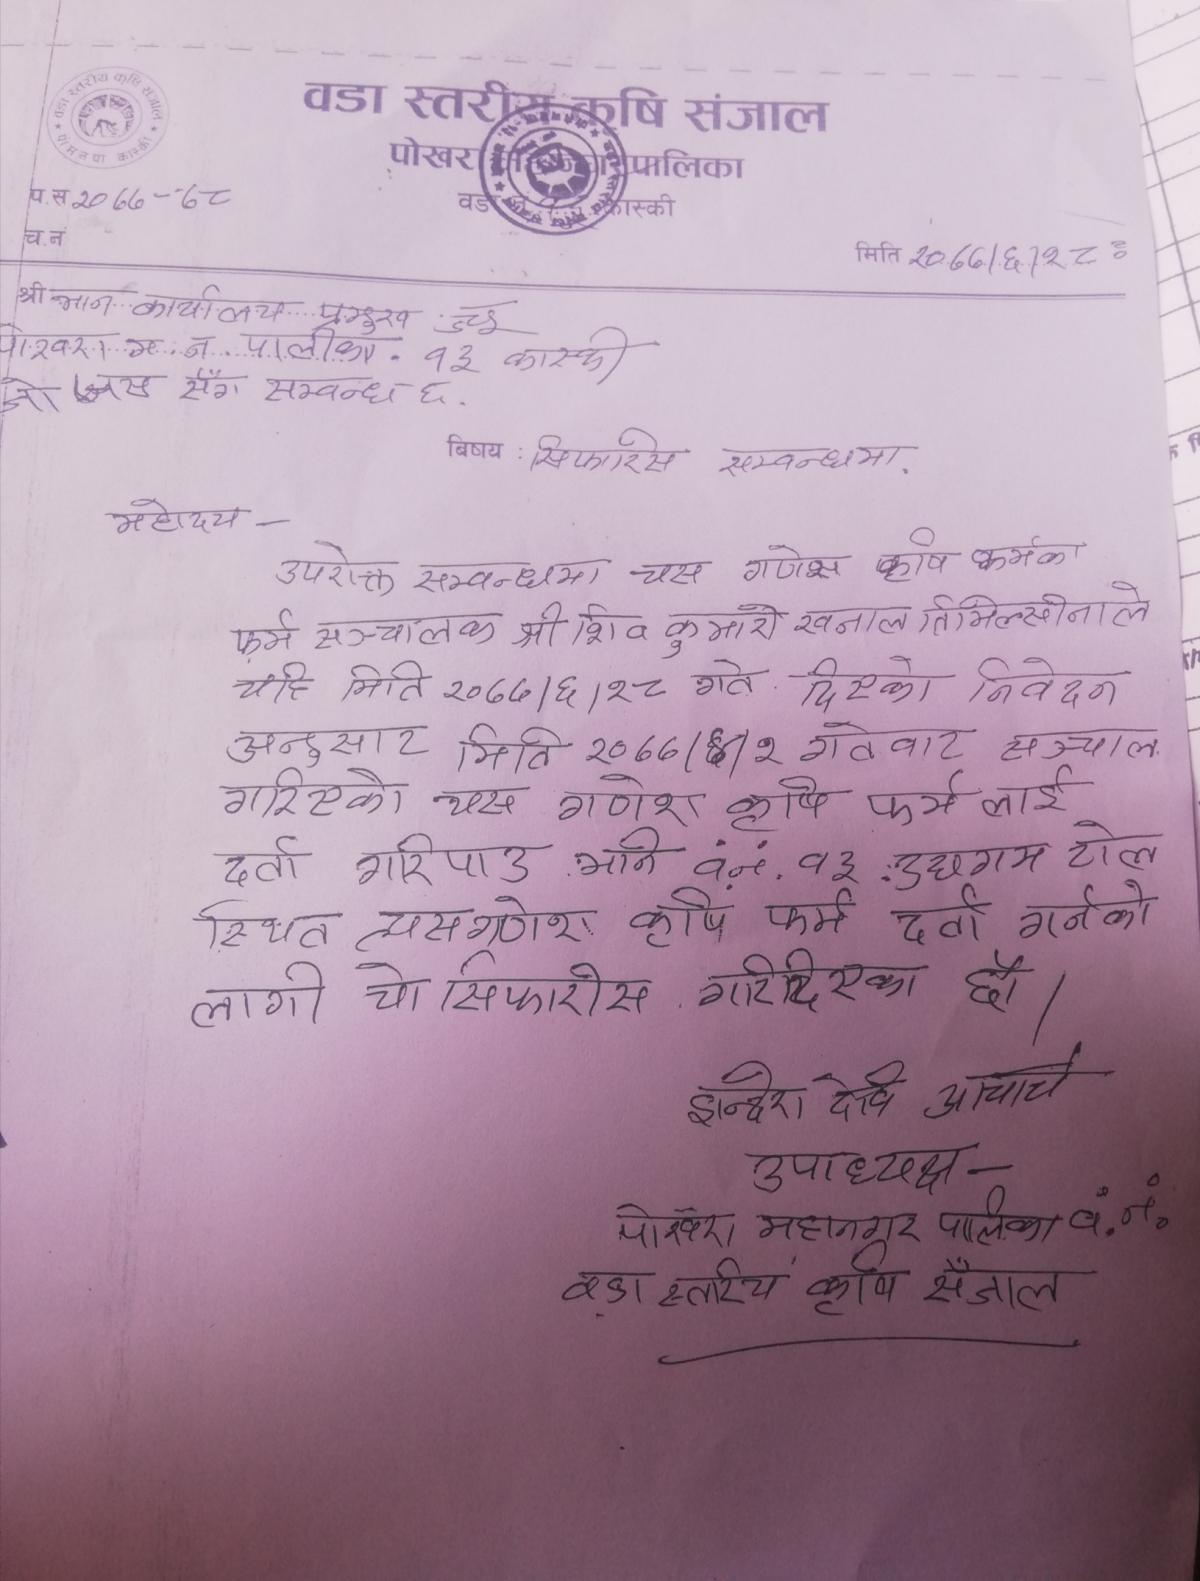 वडा स्तरीय कृषि संजाल
पोखरा महानगरपालिका
वडा नं. कास्की
वडा स्तरीय कृषि संजाल
कास्की
प.स २०७७-७८
च.नं
मिति २०७७/६/२८
श्री मान कार्यालय प्रमुख ज्यू
पोखरा म.न.पालीका. १३ कास्की
जो जस सँग सम्वन्ध छ.
बिषय : सिफारिस सम्वन्धमा.
महोदय —
उपरोक्त सम्वन्धमा यस गणेश कृषि फर्मका
फर्म सञ्चालक श्री शिव कुमारी खनाल तिमिल्सीनाले
यहि मिति २०७७/६/२८ गते दिएको निवेदन
अनुसार मिति २०७७/६/२ गतेवाट सञ्चाल
गरिएको यस गणेश कृषि फर्म लाई
दर्ता गरिपाउ भनि वं.नं. १३ टोल
स्थित त्यसगणेश कृषि फर्म दर्ता गर्नको
लागी यो सिफारीस गरिदिएका छौं ।
इन्दिरा देवि आचार्य
उपाध्यक्ष —
पोखरा महानगर पालिका वं.नं.
वडा स्तरिय कृषि सँजाल